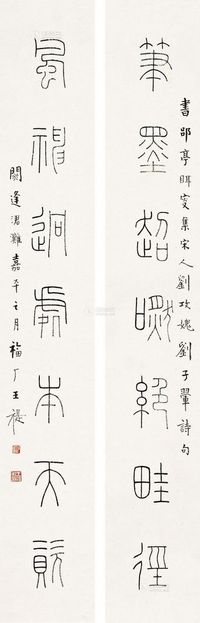 筆墨超然絕畦徑
書郘亭眲叟集宋人劉攽劉子翬詩句
風神迥處本天
閼逢涒灘嘉平之月福厂王禔